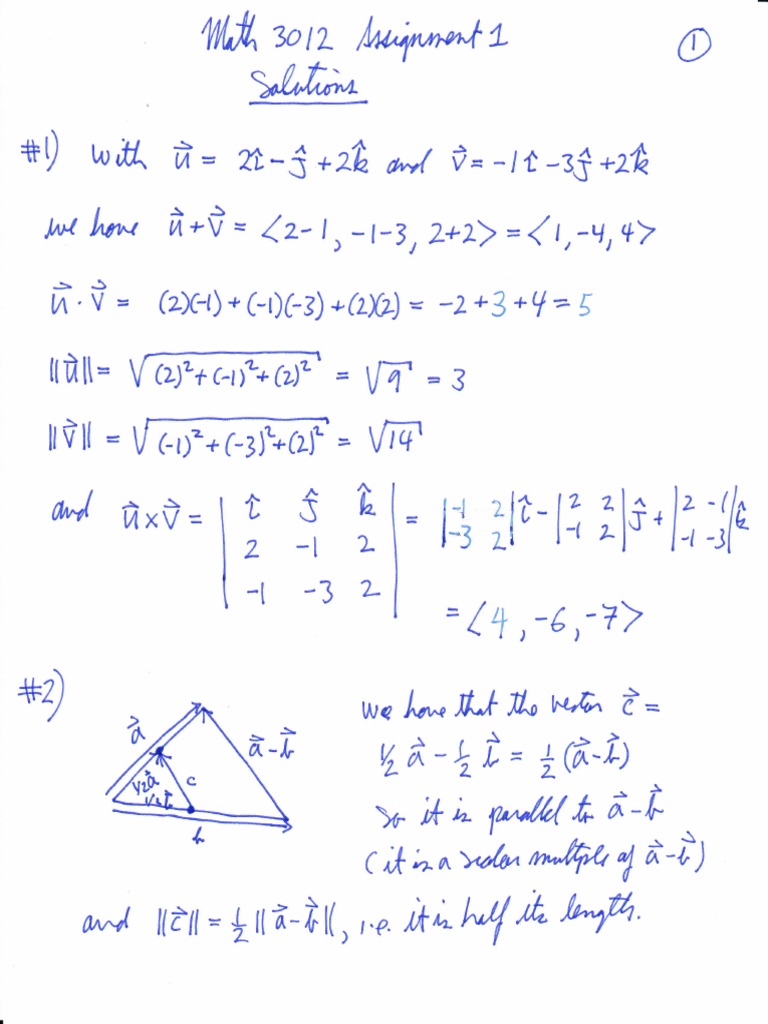 Math 3012 Assignment 1
①
Solutions
#1) With u⃗ = 2î - ĵ + 2k̂ and v⃗ = -1î - 3ĵ + 2k̂
we have u⃗ + v⃗ = <2-1, -1-3, 2+2> = <1, -4, 4>
u⃗ · v⃗ = (2)(-1) + (-1)(-3) + (2)(2) = -2 + 3 + 4 = 5
||u⃗|| = √((2)² + (-1)² + (2)²) = √9 = 3
||v⃗|| = √((-1)² + (-3)² + (2)²) = √14
and u⃗ × v⃗ = | î ĵ k̂ | = |-1 2| î - |2 2| ĵ + |2 -1| k̂
| 2 -1 2 | |-3 2| |-1 2| |-1 -3|
| -1 -3 2 |
= <4, -6, -7>
#2)
a⃗
a⃗ - b⃗
½a⃗
c
½b⃗
b
we have that the vector c⃗ =
½ a⃗ - ½ b⃗ = ½ (a⃗ - b⃗)
so it is parallel to a⃗ - b⃗
(it is a scalar multiple of a⃗ - b⃗)
and ||c⃗|| = ½ ||a⃗ - b⃗||, i.e. it is half its length.